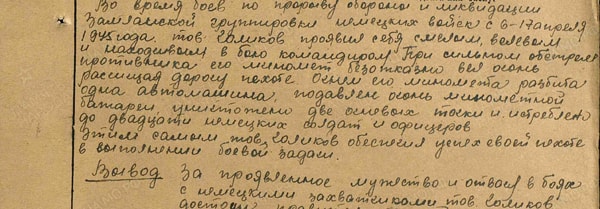 Во время боев по прорыву обороны и ликвидации
Земландской группировки немецких войск с 6-17 апреля
1945 года тов. Голиков проявил себя смелым, волевым
и находчивым в бою командиром. При сильном обстреле
противника его миномет безотказно вел огонь
расчищая дорогу пехоте. Огнем его миномета разбита
одна автомашина, подавлен огонь минометной
батареи уничтожено две огневых точки и истреблено
до двадцати немецких солдат и офицеров
Этим самым тов. Голиков обеспечил успех своей пехоте
в выполнении боевой задачи.
Вывод За проявленное мужество и отвагу в боях
с немецкими захватчиками тов. Голиков
достоин